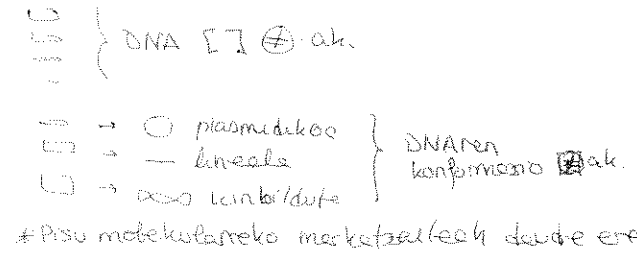 DNA [ ] ≠-ak.
→ plasmidikoa
→ — lineala
→ kiribildute
DNAren
konformazio ≠ak.
*Pisu molekularreko merkatzaileak daude ere